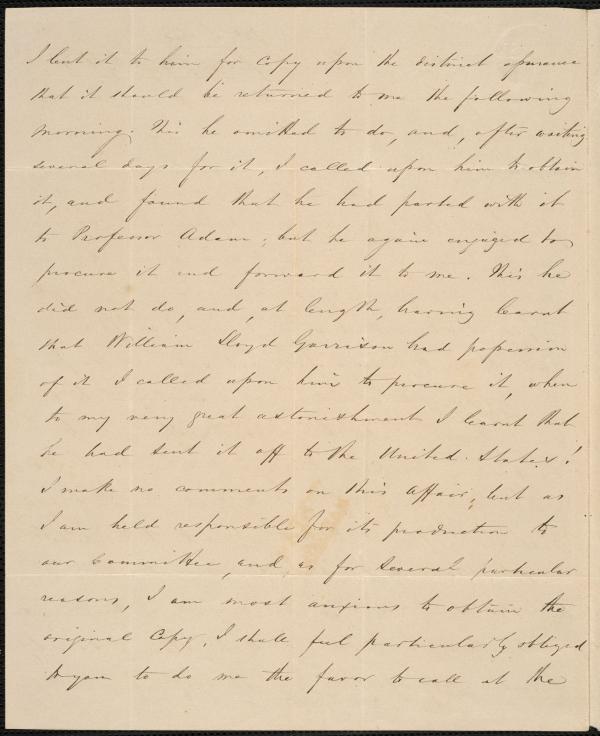 I lent it to him for copy upon the distinct assurance
that it should be returned to me the following
morning. This he omitted to do, and, after waiting
several days for it, I called upon him to obtain
it, and found that he had parted with it
to Professor Adam; but he again engaged to
procure it and forward it to me. This he
did not do, and, at length, having learnt
that William Lloyd Garrison had possession
of it I called upon him to procure it, when
to my very great astonishment I learnt that
he had sent it off to the United States!
I make no comments on this affair, but as
I am held responsible for its production to
our Committee, and, as for several particular
reasons, I am most anxious to obtain the
original Copy, I shall feel particularly obliged
to you to do me the favor to call at the